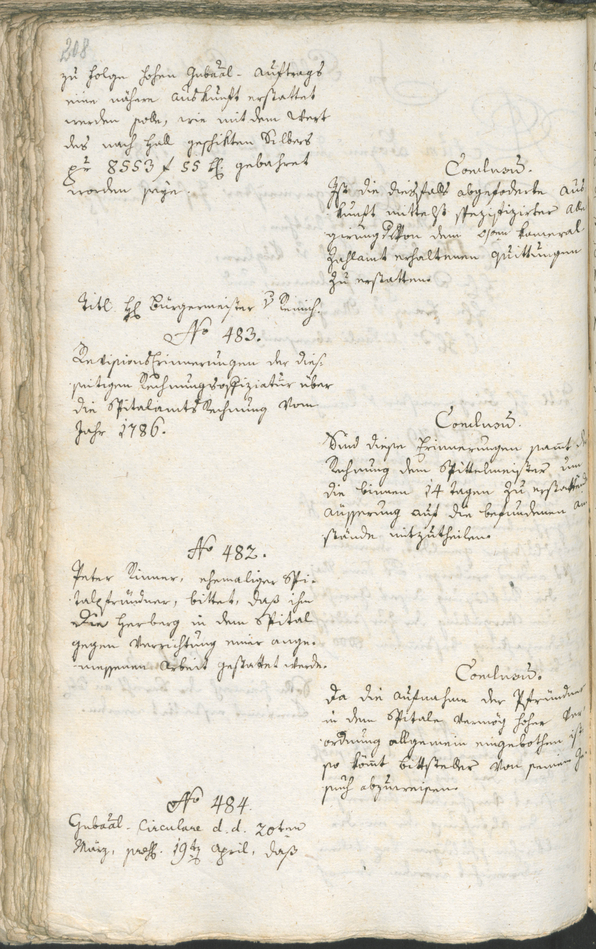 208
zu folge hohen Gubãal-Auftrags
eine nähere Auskunft erstattet
werden solle, wie mit dem Werth
des nach Hall geschikten Silbers
pr 8553 f 55 xr gebahret
worden seye.
Conclusū.
Ist die diesfalls abgeforderte Aus
kunft mittelst spezifizirter
von dem Kameral
Zahlamt erhaltenen Quittungen
zu erstatten.
Titl. H. Bürgermeister v Reinisch.
No 483.
Revisions Erinnerungen der dies-
seitigen Rechnungsoffiziatur über
die Spitalamts Rechnung vom
Jahr 1786.
Conclusū.
Sind diese Erinnerungen samt der
Rechnung dem Spittelmeister, um
die binnen 14 Tagen zu erstattende
Äusserung auf die befundenen An
stände mitzutheilen.
No 482.
Peter Rinner, ehemaliger Spi-
talpfründner, bittet, daß ihm
die Herberg in dem Spital
gegen Verrichtung einer ange-
messenen Arbeit gestattet werde.
Conclusū.
Da die Aufnahme der Pfründner
in dem Spitale vermög hoher Ver
ordnung allgemein eingebothen ist
so kömt Bittsteller von seinem Ge
such abzuweisen.
No 484.
Gubãal-Circulare d. d. 20ten
März, pres. 19ten April, daß